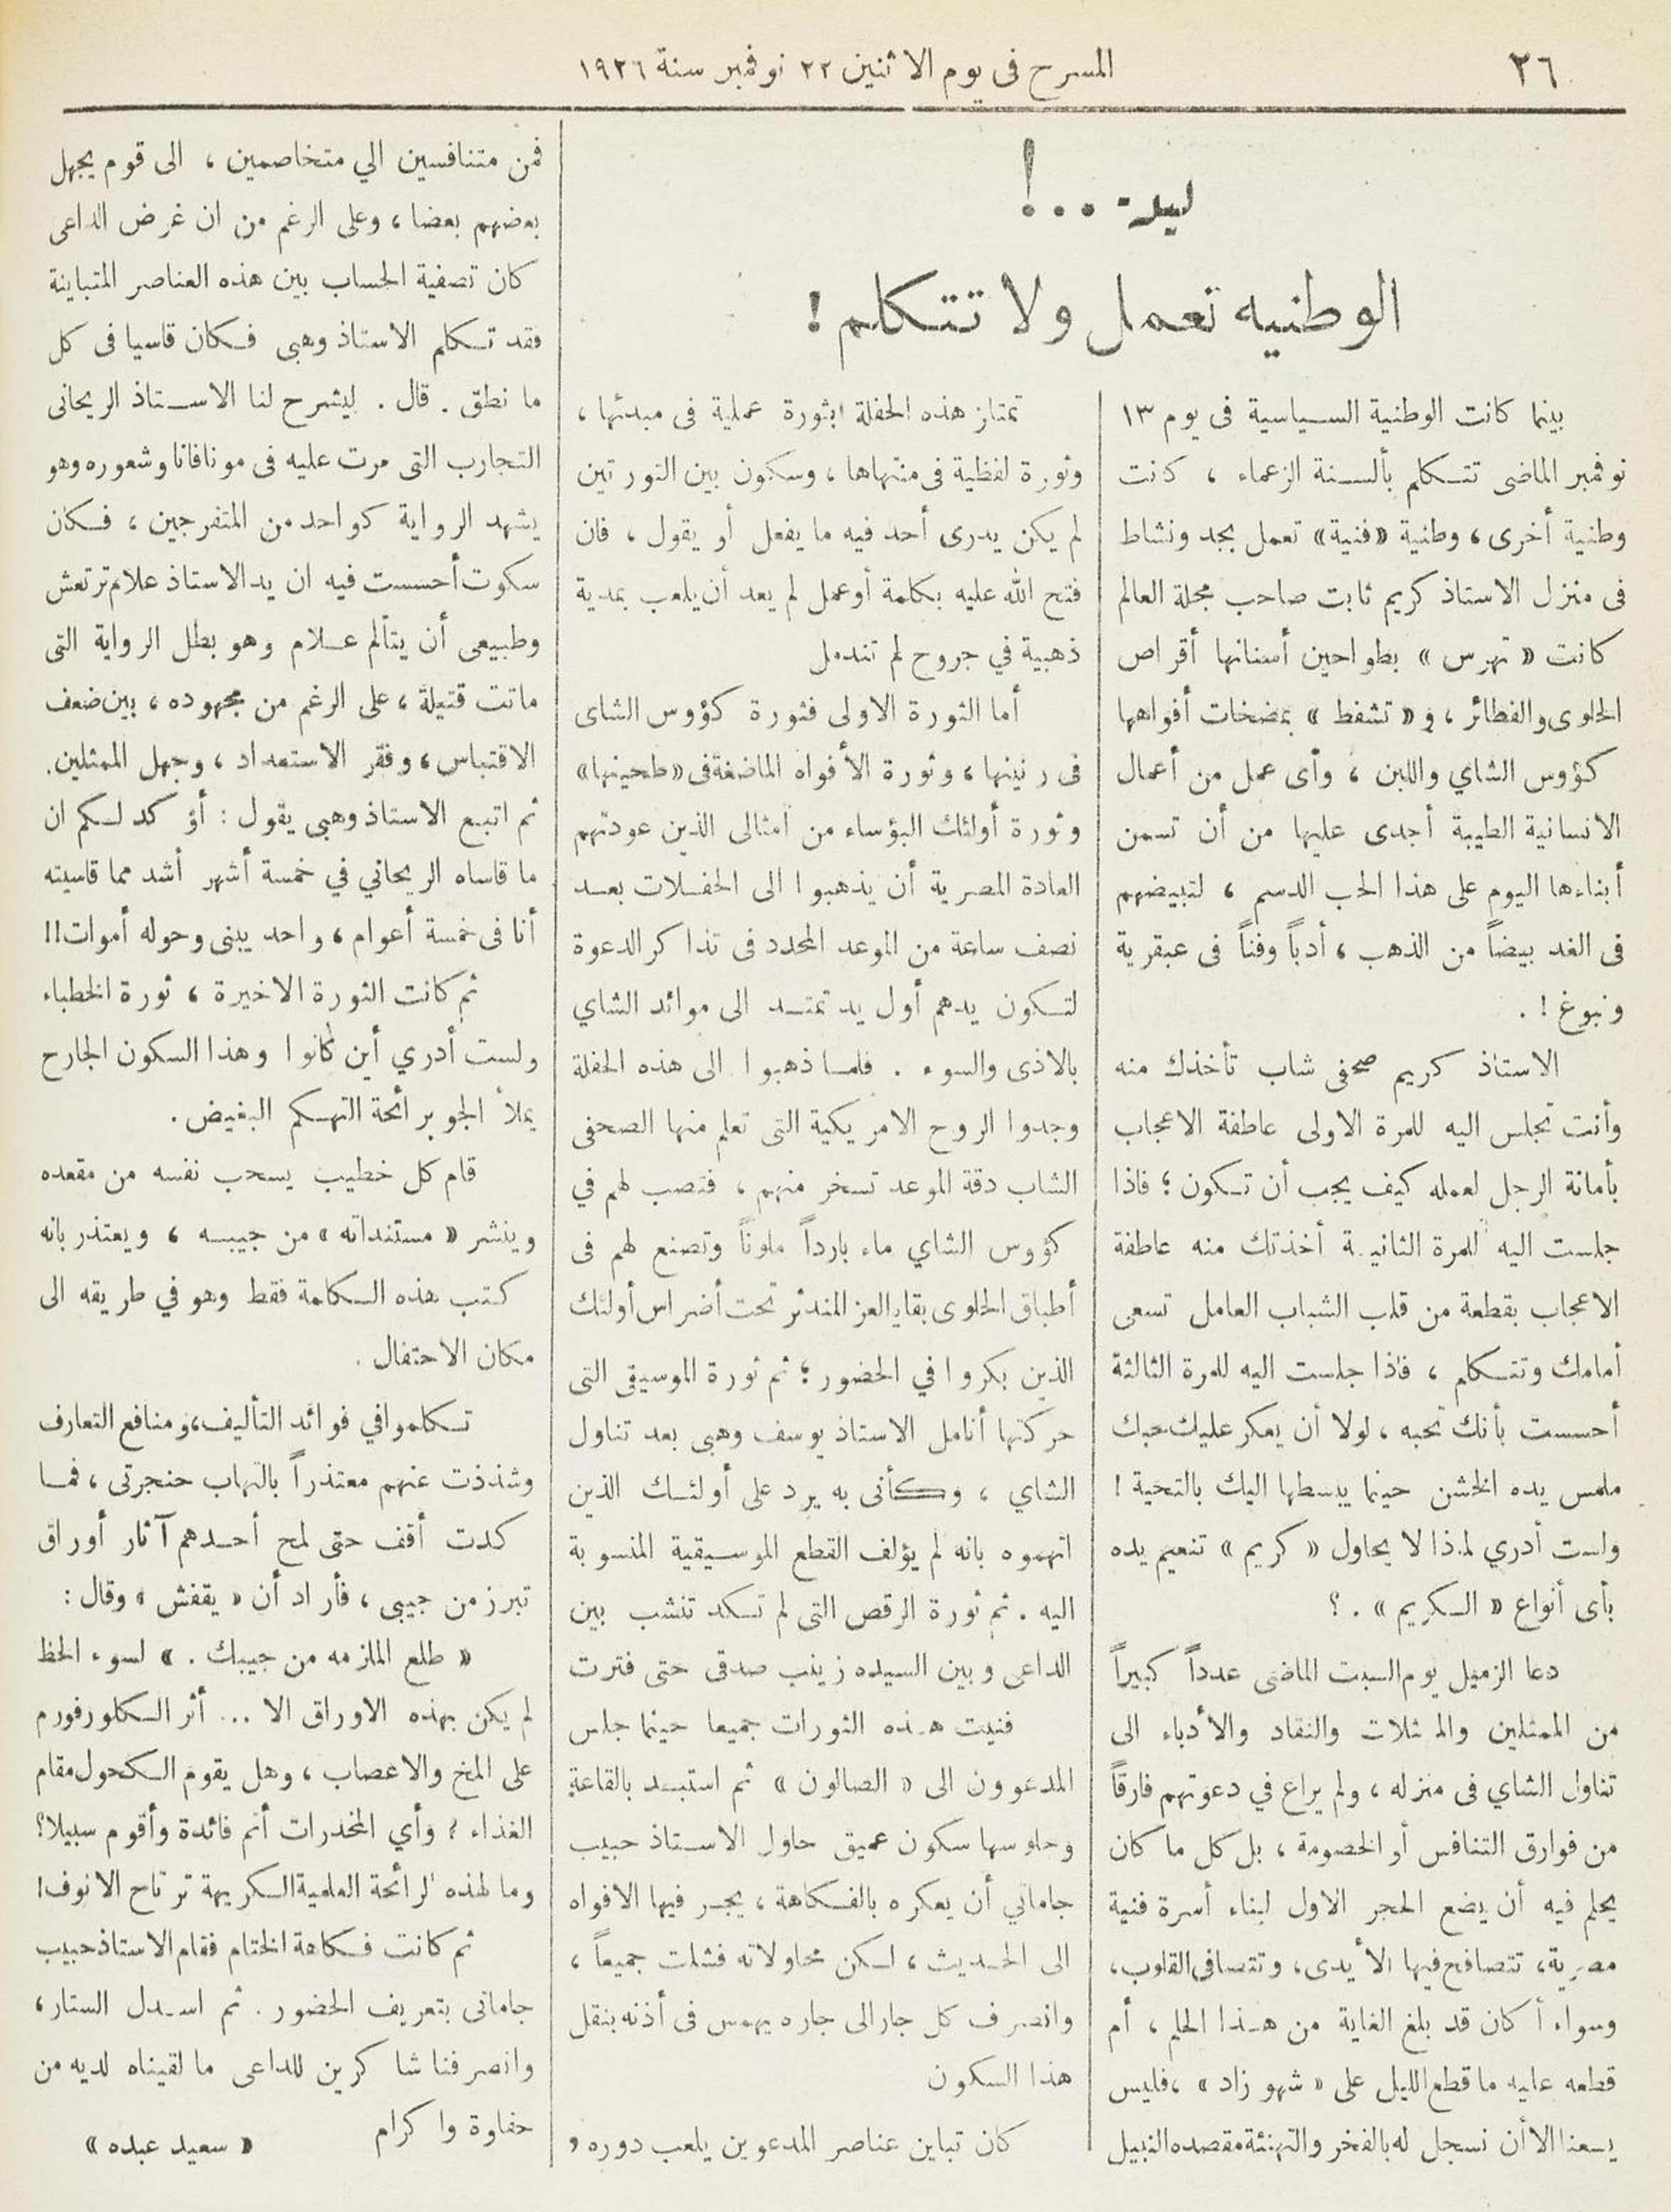 ٢٦
المسرح فى يوم الاثنين ٢٢ نوفمبر سنة ١٩٢٦
ليد...!
الوطنيه تعمل ولا تتكلم !
بينما كانت الوطنية السياسية فى يوم ١٣
نوفمبر الماضى تتكلم بألسنة الزعماء ، كانت
وطنية أخرى ، وطنية «فنية» تعمل بجد ونشاط
فى منزل الاستاذ كريم ثابت صاحب مجلة العالم
كانت « تهرس » بطواحين أسنانها أقراص
الحلوى والفطائر ، و« تشفط » بمضخات أفواهها
كؤوس الشاي واللبن ، وأى عمل من أعمال
الانسانية الطيبة أجدى عليها من أن تسمن
أبناءها اليوم على هذا الحب الدسم ، لتبيضهم
فى الغد بيضاً من الذهب ، أدباً وفناً فى عبقرية
ونبوغ ! .
الاستاذ كريم صحفى شاب تأخذك منه
وأنت تجلس اليه للمرة الاولى عاطفة الاعجاب
بأمانة الرجل لعمله كيف يجب أن تكون ؛ فاذا
جلست اليه للمرة الثانية أخذتك منه عاطفة
الاعجاب بقطعة من قلب الشباب العامل تسعى
أمامك وتتكلم ، فاذا جلست اليه للمرة الثالثة
أحسست بأنك تحبه ، لولا أن يعكر عليك حبك
ملمس يده الخشن حينما يبسطها اليك بالتحية !
ولست أدري لماذا لا يحاول « كريم » تنعيم يده
بأى أنواع « الكريم » . ؟
دعا الزميل يوم السبت الماضى عدداً كبيراً
من الممثلين والمثلات والنقاد والأدباء الى
تناول الشاي فى منزله ، ولم يراع في دعوتهم فارقاً
من فوارق التنافس أو الخصومة ، بل كل ما كان
يحلم فيه أن يضع الحجر الاول لبناء أسرة فنية
مصرية ، تتصافح فيها الأيدى ، وتتصافى القلوب ،
وسواء أكان قد بلغ الغاية من هذا الحلم ، أم
قطعه عليه ما قطع الليل على « شهو زاد » ، فليس
يسعنا الا أن نسجل له بالفخر والتهنئة مقصده النبيل
تمتاز هذه الحفلة بثورة عملية فى مبدئها ،
وثورة لفظية فى منتهاها ، وسكون بين الثورتين
لم يكن يدرى أحد فيه ما يفعل أو يقول ، فان
فتح الله عليه بكلمة أو عمل لم يعد أن يلعب بمدية
ذهبية في جروح لم تندمل
أما الثورة الاولى فثورة كؤوس الشاى
فى رنينها ، وثورة الأفواه الماضغة فى « طحينها »
وثورة أولئك البؤساء من أمثالى الذين عودتهم
العادة المصرية أن يذهبوا الى الحفلات بعد
نصف ساعة من الموعد المحدد فى تذاكر الدعوة
لتكون يدهم أول يد تمتد الى موائد الشاي
بالاذى والسوء . فلما ذهبوا الى هذه الحفلة
وجدوا الروح الامريكية التى تعلم منها الصحفى
الشاب دقة الموعد تسخر منهم ، فتصب لهم في
كؤوس الشاي ماء بارداً ملوناً وتصنع لهم فى
أطباق الحلوى بقايا العز المندثر تحت أضراس أولئك
الذين بكروا في الحضور ؛ ثم ثورة الموسيقى التى
حركتها أنامل الاستاذ يوسف وهبى بعد تناول
الشاي ، وكأنى به يرد على أولئك الذين
اتهموه بانه لم يؤلف القطع الموسيقية المنسوبة
اليه . ثم ثورة الرقص التى لم تكد تنشب بين
الداعى وبين السيده زينب صدقى حتى فترت
فنيت هذه الثورات جميعا حينما جلس
المدعوون الى « الصالون » ثم استبد بالقاعة
وجلوسها سكون عميق حاول الاستاذ حبيب
جاماتي أن يعكره بالفكاهة ، يجر فيها الافواه
الى الحديث ، لكن محاولاته فشلت جميعاً ،
وانصرف كل جار الى جاره يهمس فى أذنه بثقل
هذا السكون
كان تباين عناصر المدعوين يلعب دوره ،
فمن متنافسين الي متخاصمين ، الى قوم يجهل
بعضهم بعضا ، وعلى الرغم من ان غرض الداعى
كان تصفية الحساب بين هذه العناصر المتباينة
فقد تكلم الاستاذ وهبى فكان قاسيا فى كل
ما نطق . قال . ليشرح لنا الاستاذ الريحانى
التجارب التى مرت عليه فى مونافانا وشعوره وهو
يشهد الرواية كواحد من المتفرجين ، فكان
سكوت أحسست فيه ان يد الاستاذ علام ترتعش
وطبيعى أن يتألم علام وهو بطل الرواية التى
ماتت قتيلة ، على الرغم من مجهوده ، بين ضعف
الاقتباس ، وفقر الاستعداد ، وجهل الممثلين .
ثم اتبع الاستاذ وهبى يقول : أؤكد لكم ان
ما قاساه الريحاني في خمسة أشهر أشد مما قاسيته
أنا فى خمسة أعوام ، واحد يبنى وحوله أموات !!
ثم كانت الثورة الاخيرة ، ثورة الخطباء
ولست أدري أين كانوا وهذا السكون الجارح
يملأ الجو برائحة التهكم البغيض .
قام كل خطيب يسحب نفسه من مقعده
وينشر « مستنداته » من جيبه ، ويعتذر بانه
كتب هذه الكلمة فقط وهو في طريقه الى
مكان الاحتفال .
تكلموا في فوائد التأليف ، ومنافع التعارف
وشذذت عنهم معتذراً بالتهاب حنجرتى ، فما
كدت أقف حتى لمح أحدهم آثار أوراق
تبرز من جيبى ، فأراد أن « يقفش » وقال :
« طلع الملزمه من جيبك . » لسوء الحظ
لم يكن بهذه الاوراق الا ... أثر الكلورفورم
على المخ والاعصاب ، وهل يقوم الكحول مقام
الغذاء ؟ وأي المخدرات أتم فائدة وأقوم سبيلا ؟
وما لهذه الرائحة العلمية الكريهة ترتاح الانوف !
ثم كانت فكاهة الختام فقام الاستاذ حبيب
جاماتى بتعريف الحضور . ثم اسدل الستار ،
وانصرفنا شاكرين للداعى ما لقيناه لديه من
حفاوة واكرام
« سعيد عبده »